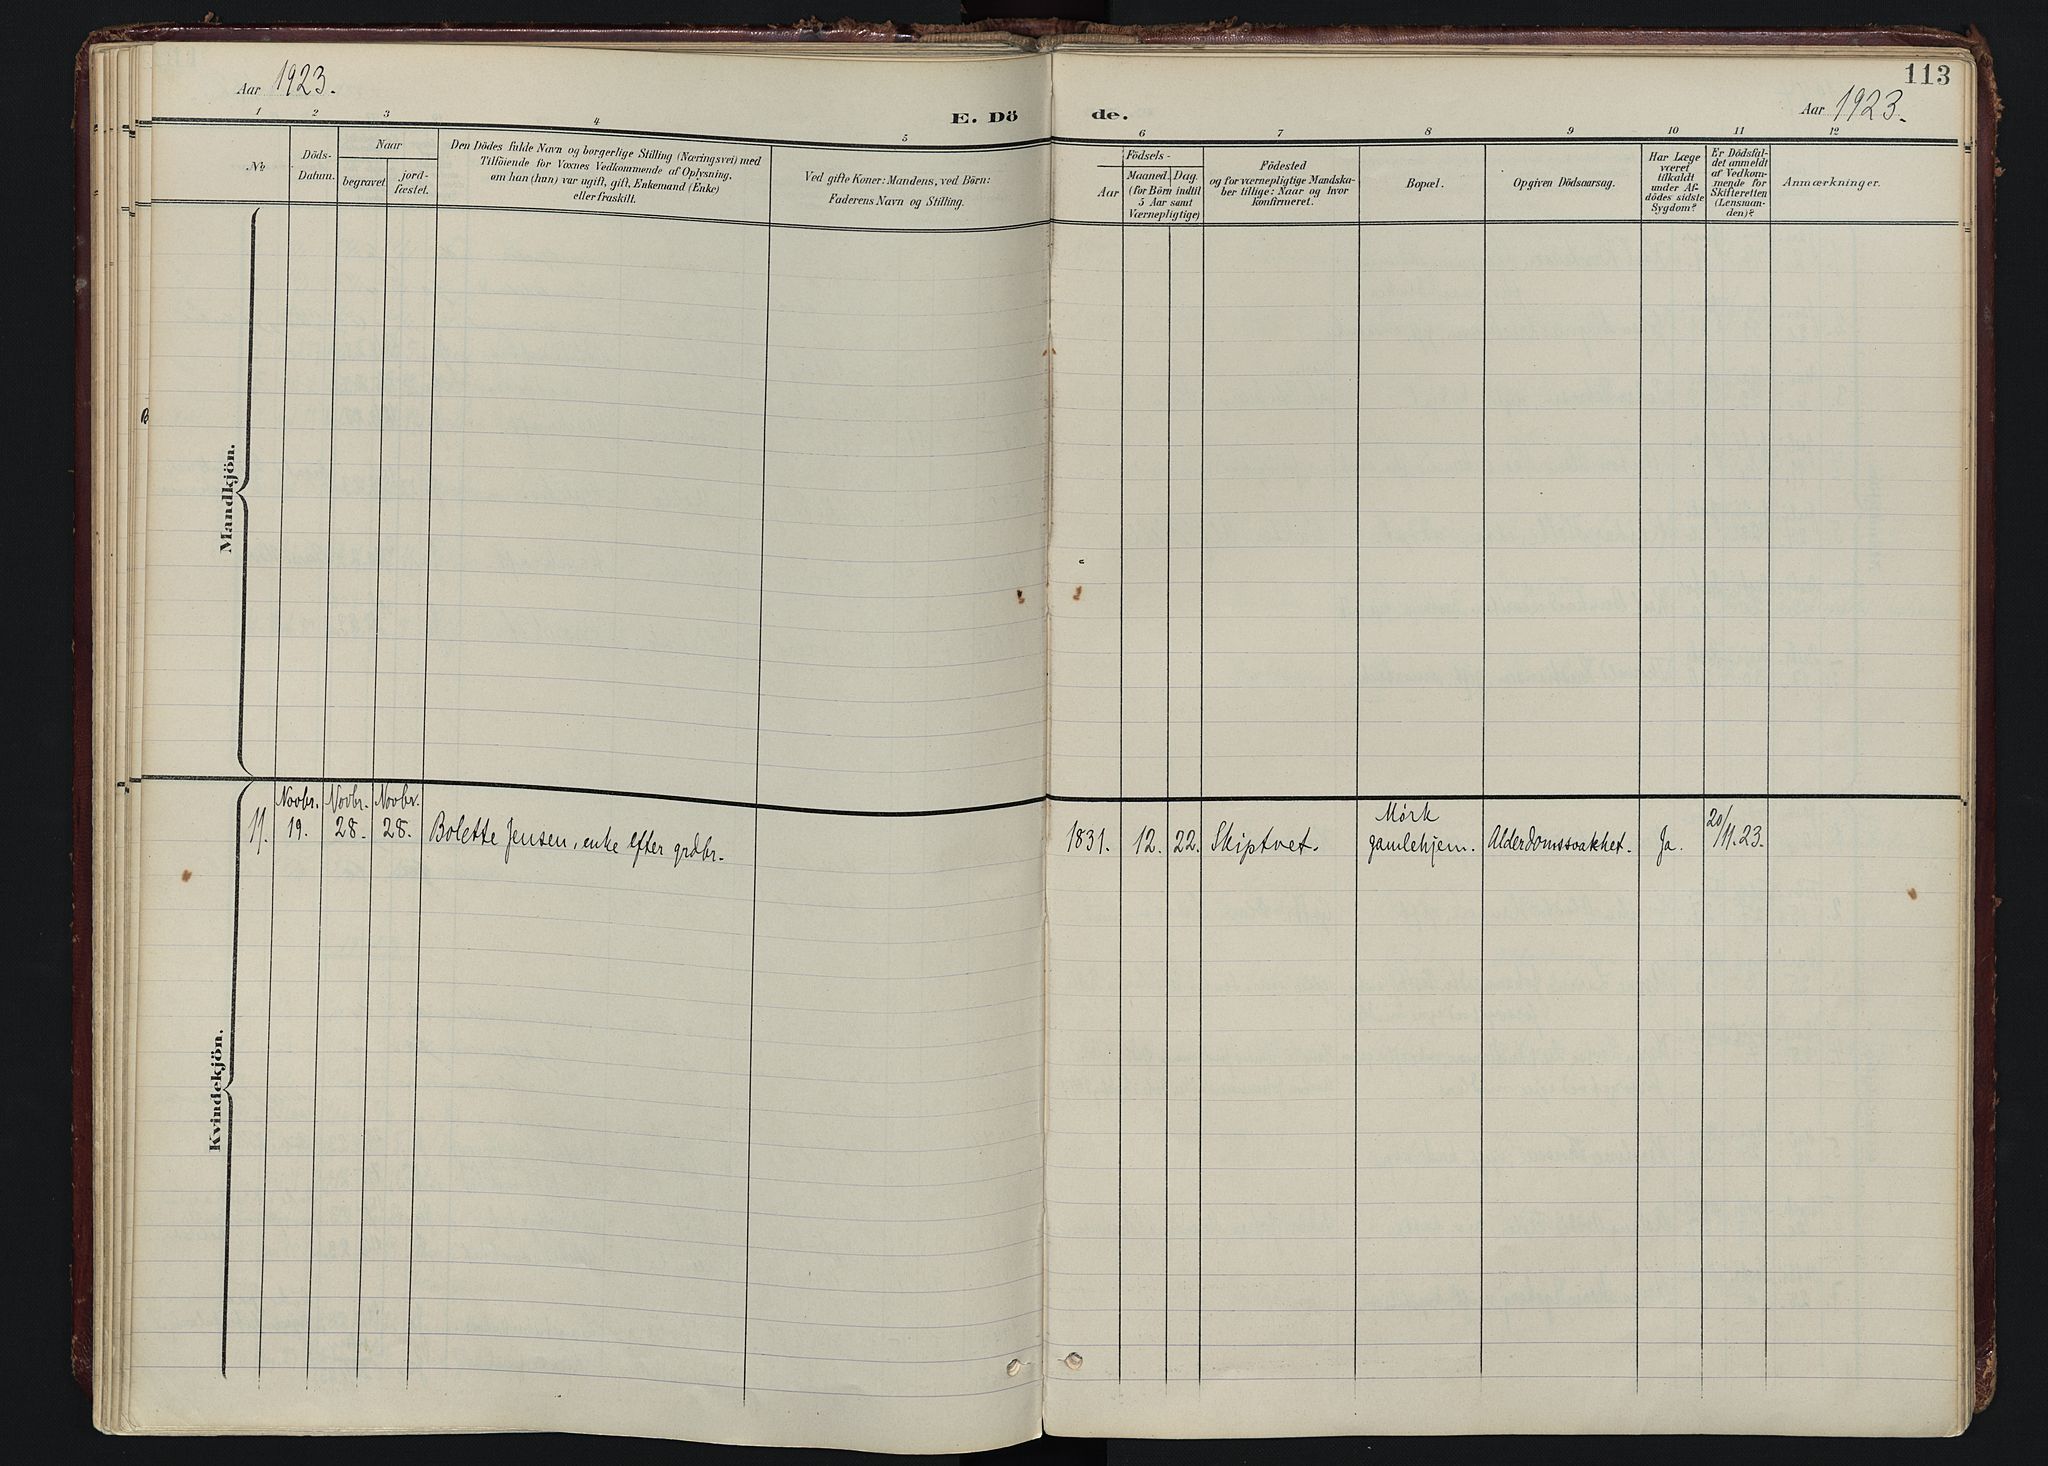 Aar 1923.
E. Döde.
113
Aar 1923.
1 2 3 4 5 6 7 8 9 10 11 12
No
Döds-
Datum.
Naar
begravet.
jord-
fæstet.
Den Dödes fulde Navn og borgerlige Stilling (Næringsvei) med
Tilföiende for Voxnes Vedkommende af Oplysning,
om han (hun) var ugift, gift, Enkemand (Enke)
eller fraskilt.
Ved gifte Koner: Mandens, ved Börn:
Faderens Navn og Stilling.
Födsels-
Aar
Maaned.
Dag.
(for Börn indtil
5 Aar samt
Værnepligtige)
Födested
og for værnepligtige Mandska-
ber tillige: Naar og hvor
konfirmeret.
Bopæl.
Opgiven Dödsaarsag.
Har Læge
været
tilkaldt
under Af-
dödes sidste
Sygdom?
Er Dödsfal-
det anmeldt
af Vedkom-
mende for
Skifteretten
(Lensman-
den)?
Anmærkninger.
B
Mandkjön.
Kvindekjön.
Novbr. Novbr. Novbr. Mørk 20/
11. 19. 28. 28. Bolette Jensen, enke efter grdbr. 1831. 12. 22. Skiptvet. gamlehjem. Alderdomssvakhet. Ja. 11.23.